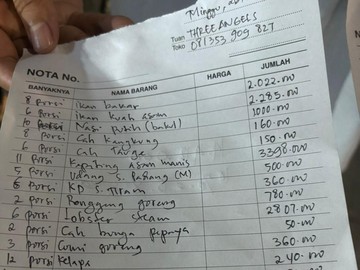 Minggu,
Tuan THREE ANGELS
Toko 081353 909 827
NOTA No.
BANYAKNYA NAMA BARANG HARGA JUMLAH
8 porsi ikan bakar 2.022.000
6 porsi ikan kuah asam 2.285.000
10 Nasi Putih (bakul) 1000.000
8 porsi Cah kangkung 160.000
6 porsi Cah Tauge 150.000
11 porsi Kepiting asam manis 3398.000
5 porsi Udang S. Padang (M) 500.000
porsi KP S. Tiram 360.000
2 porsi goreng 780.000
6 porsi Lobster steam 2807.000
2 porsi Cah bunga pepaya 50.000
3 porsi Cumi goreng 360.000
12 porsi Kelapa 240.000